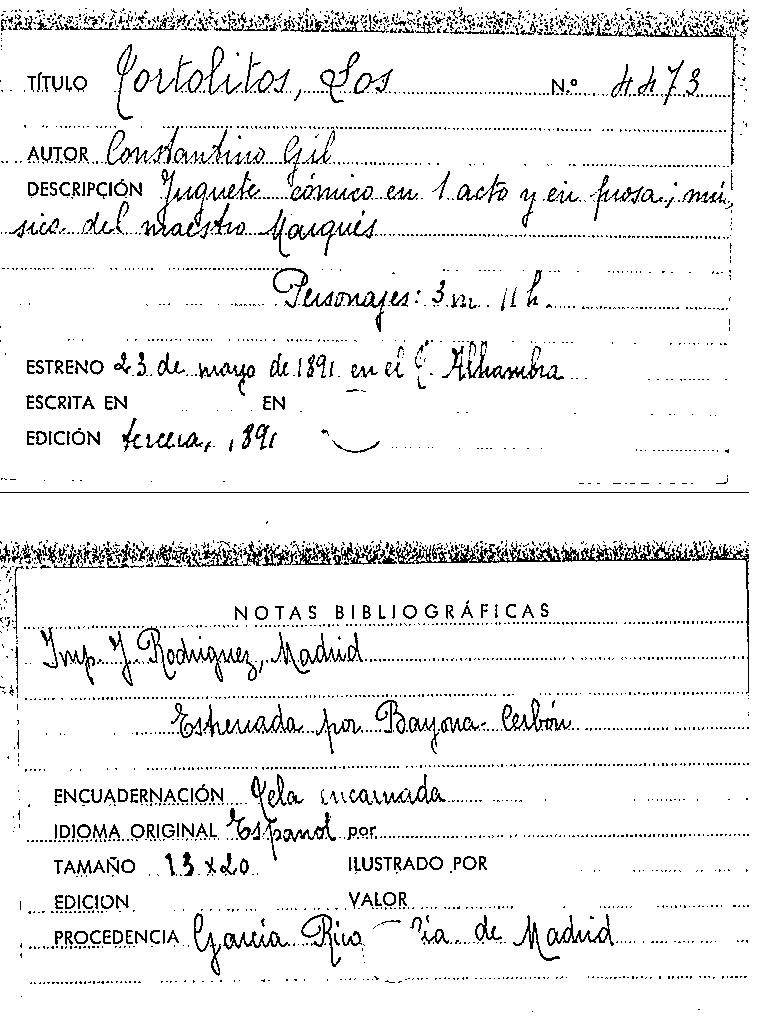 TÍTULO Tortolitos, Los N.º 4473
AUTOR Constantino Gil
DESCRIPCIÓN Juguete cómico en 1 acto y en prosa; mú-
sica del maestro Marqués
Personajes: 3 m. 11 h.
ESTRENO 23 de mayo de 1891 en el T. Alhambra
ESCRITA EN EN
EDICIÓN tercera, 1891
NOTAS BIBLIOGRÁFICAS
Imp. J. Rodriguez, Madrid
Estrenada por Bayona - Cerbón
ENCUADERNACIÓN Tela encarnada
IDIOMA ORIGINAL Español por
TAMAÑO 13 x 20 ILUSTRADO POR
EDICION VALOR
PROCEDENCIA García Rico de Madrid